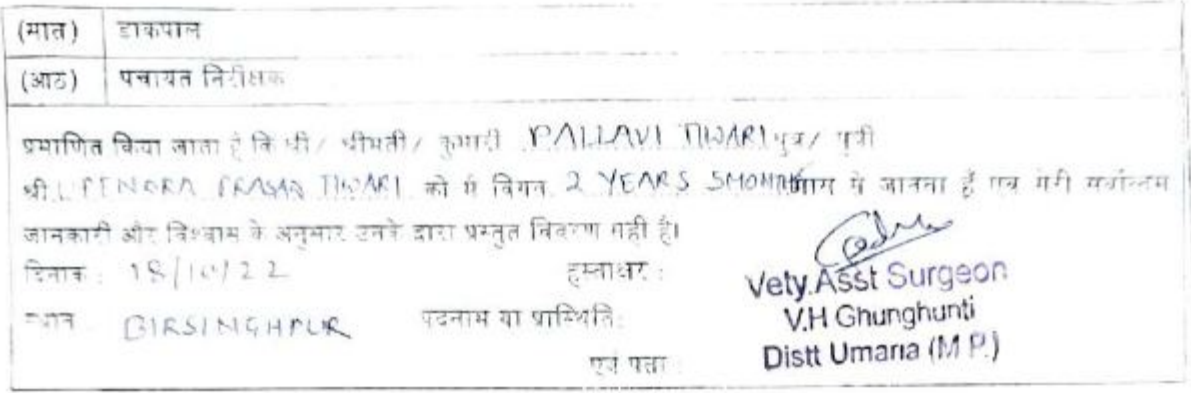 (मात) डाकपाल
(आठ) पंचायत निरीक्षक
प्रमाणित किया जाता है कि श्री/ श्रीमती/ कुमारी PALLAVI TIWARI पुत्र/ पुत्री
श्री UPENDRA PRASAD TIWARI को मैं विगत 2 YEARS 5MONTH माग मे जानता हूँ एवं मेरी सर्वोत्तम
जानकारी और विश्वास के अनुसार उनके द्वारा प्रस्तुत विवरण सही है।
दिनांक : 18/10/22 हस्ताक्षर :
स्थान BIRSINGHPUR पदनाम या प्रास्थिति:
एवं पता :
Vety.Asst Surgeon
V.H Ghunghunti
Distt Umaria (M.P.)